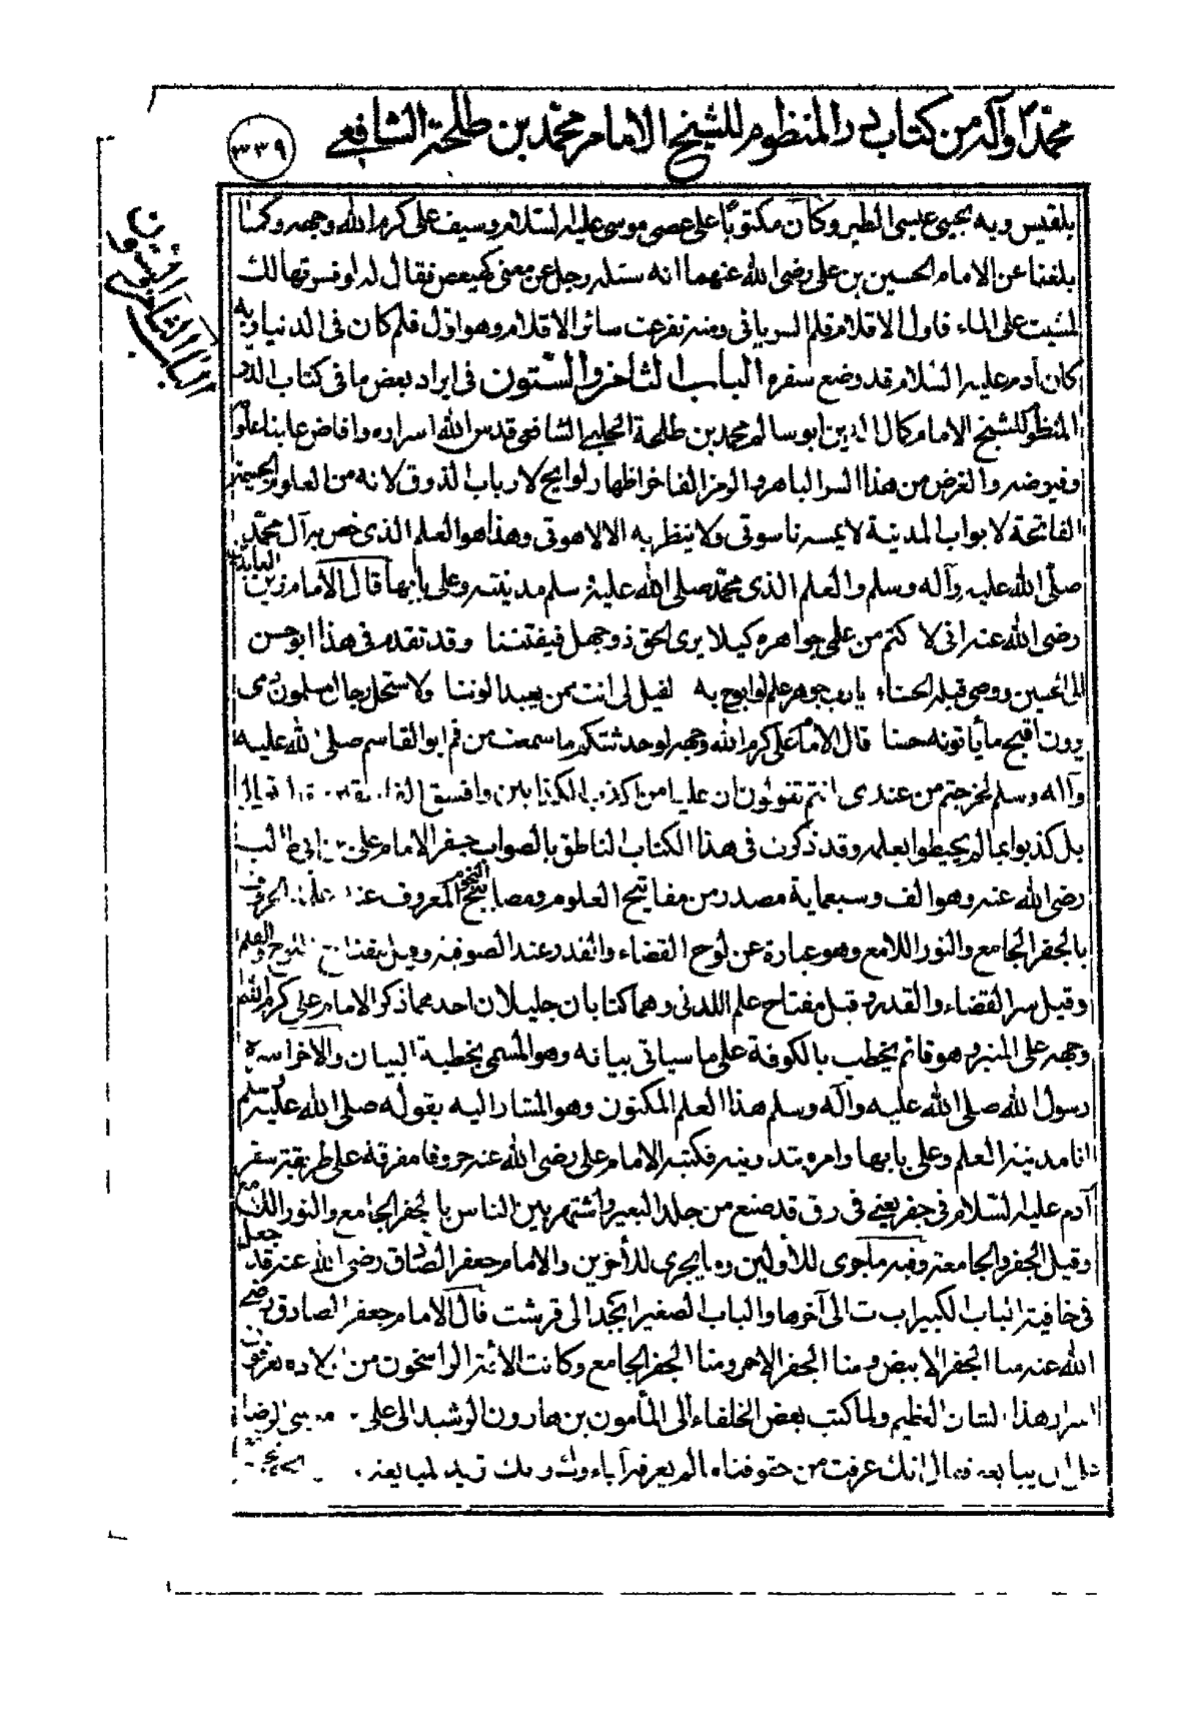 محمدا وآله من كتاب در المنظوم للشيخ الامام محمد بن طلحة الشافعي
٣٣٩
الباب الثامن والستون
بلقيس وبه يحيى عيسى الطير وكان مكتوبا على عصى موسى عليه السلام وسيف على كرم الله وجهه وكما
بلغنا عن الامام الحسين بن على رضى الله عنهما انه سئله رجل عن معنى كهيعص فقال له لو فسرتها لك
لمشيت على الماء فاول الاقلام قلم السريانى ومنه تفرعت سائر الاقلام وهو اول قلم كان فى الدنيا وبه
كان آدم عليه السلام قد وضع سفره الباب الثامن والستون فى ايراد بعض ما فى كتاب الدر
المنظوم للشيخ الامام كمال الدين ابو سالم محمد بن طلحة الحلبى الشافعى قدس الله اسراره وافاض علينا علومه
وفيوضه والغرض من هذا السر الباهر والرمز الفاخر اظهار لوايح لارباب الذوق لانه من العلوم الجسيمة
الفاتحة لابواب المدينة لا يمسه ناسوتى ولا ينظر به الا لاهوتى وهذا هو العلم الذى خص به آل محمد
صلى الله عليه وآله وسلم والعلم الذى محمد صلى الله عليه وسلم مدينته وعلى بابها قال الامام زين العابدين
رضى الله عنه انى لاكتم من علمى جواهره كيلا يرى الحق ذو جهل فيفتننا وقد تقدم فى هذا ابو حسن
الى الحسين ووصى قبله الحسناء يا رب جوهر علم لو ابوح به لقيل لى انت ممن يعبد الوثنا ولاستحل رجال مسلمون دمى
يرون اقبح ما يأتونه حسنا قال الامام على كرم الله وجهه لو حدثتكم ما سمعت من فم ابو القاسم صلى الله عليه
وآله وسلم لخرجتم من عندى انتم تقولون ان عليا من اكذب الكذابين وافسق
بل كذبوا بما لم يحيطوا بعلمه وقد ذكرت فى هذا الكتاب الناطق بالصواب جفر الامام على بن ابى طالب
رضى الله عنه وهو الف وسبعماية مصدر من مفاتيح العلوم ومصابيح النجوم المعروف عند علماء الحروف
بالجفر الجامع والنور اللامع وهو عبارة عن لوح القضاء والقدر عند الصوفية وقيل مفتاح اللوح والقلم
وقيل سر القضاء والقدر وقيل مفتاح علم اللدنى وهما كتابان جليلان احدهما ذكر الامام على كرم الله
وجهه على المنبر وهو قائم يخطب بالكوفة على ما سياتى بيانه وهو المسمى بخطبة البيان والآخر اسره
رسول الله صلى الله عليه وآله وسلم هذا العلم المكنون وهو المشار اليه بقوله صلى الله عليه وسلم
انا مدينة العلم وعلى بابها وامره بتدوينه فكتبه الامام على رضى الله عنه حروفا مفرقة على طريقة سفر
آدم عليه السلام فى جفر يعنى فى رق قد صنع من جلد البعير واشتهر بين الناس بالجفر الجامع والنور اللامع
وقيل الجفر والجامعة وفيه ما جرى للاولين وما يجرى للآخرين والامام جعفر الصادق رضى الله عنه قد جعل
فى خافية الباب الكبير اب ت الى آخرها والباب الصغير ابجد الى قرشت قال الامام جعفر الصادق رضى
الله عنه منا الجفر الابيض ومنا الجفر الاحمر ومنا الجفر الجامع وكانت الائمة الراسخون من اولاده يعرفون
اسرار هذا الشان العظيم ولما كتب بعض الخلفاء الى المأمون بن هارون الرشيد الى على موسى الرضا
على ان يبايعه فقال انك عرفت من حقوقنا ما لم يعرفه آباءوك و تريد لمبايعته